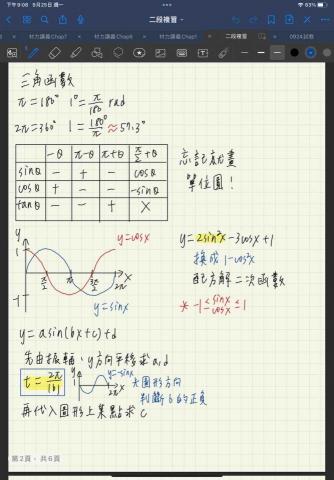 下午9:08 9月25日 週一
93%
二段複習
材力講義Chap7
材力講義Chap6
材力講義Chap1
二段複習
0924試卷
三角函數
π=180° 1°=π/180 rad
2π=360° 1=180°/π≈57.3°
-θ π-θ π+θ π/2+θ
sinθ - + - cosθ
cosθ + - - -sinθ
tanθ - - + X
忘記就畫
單位圓!
y
1
-1
y=cosx
y=sinx
π/2 π 3π/2 2π x
y=2sin²x-3cosx+1
換成1-cos²x
配方解二次函數
* -1≤sinx cosx≤1
y=asin(bx+c)+d
先由振幅、y方向平移求a,d
t=2π/|b|
y
1
y=-sinx
2π x
大圖形方向
判斷b的正負
再代入圖形上某點求c
第2頁,共6頁